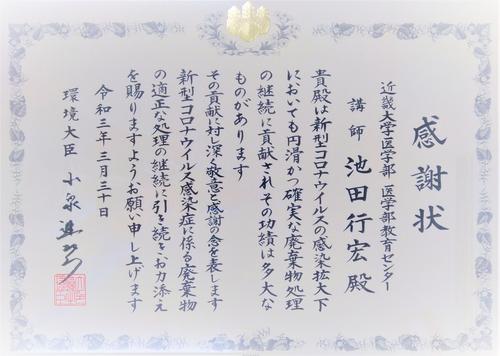 感謝状
近畿大学医学部 医学部教育センター
講師 池田行宏 殿
貴殿は新型コロナウイルスの感染拡大下
においても円滑かつ確実な廃棄物処理
の継続に貢献されその功績は多大な
ものがあります
その貢献に対し深く敬意と感謝の念を表します
新型コロナウイルス感染症に係る廃棄物
の適正な処理の継続に引き続きお力添え
を賜りますようお願い申し上げます
令和三年三月三十日
環境大臣 小泉進次郎